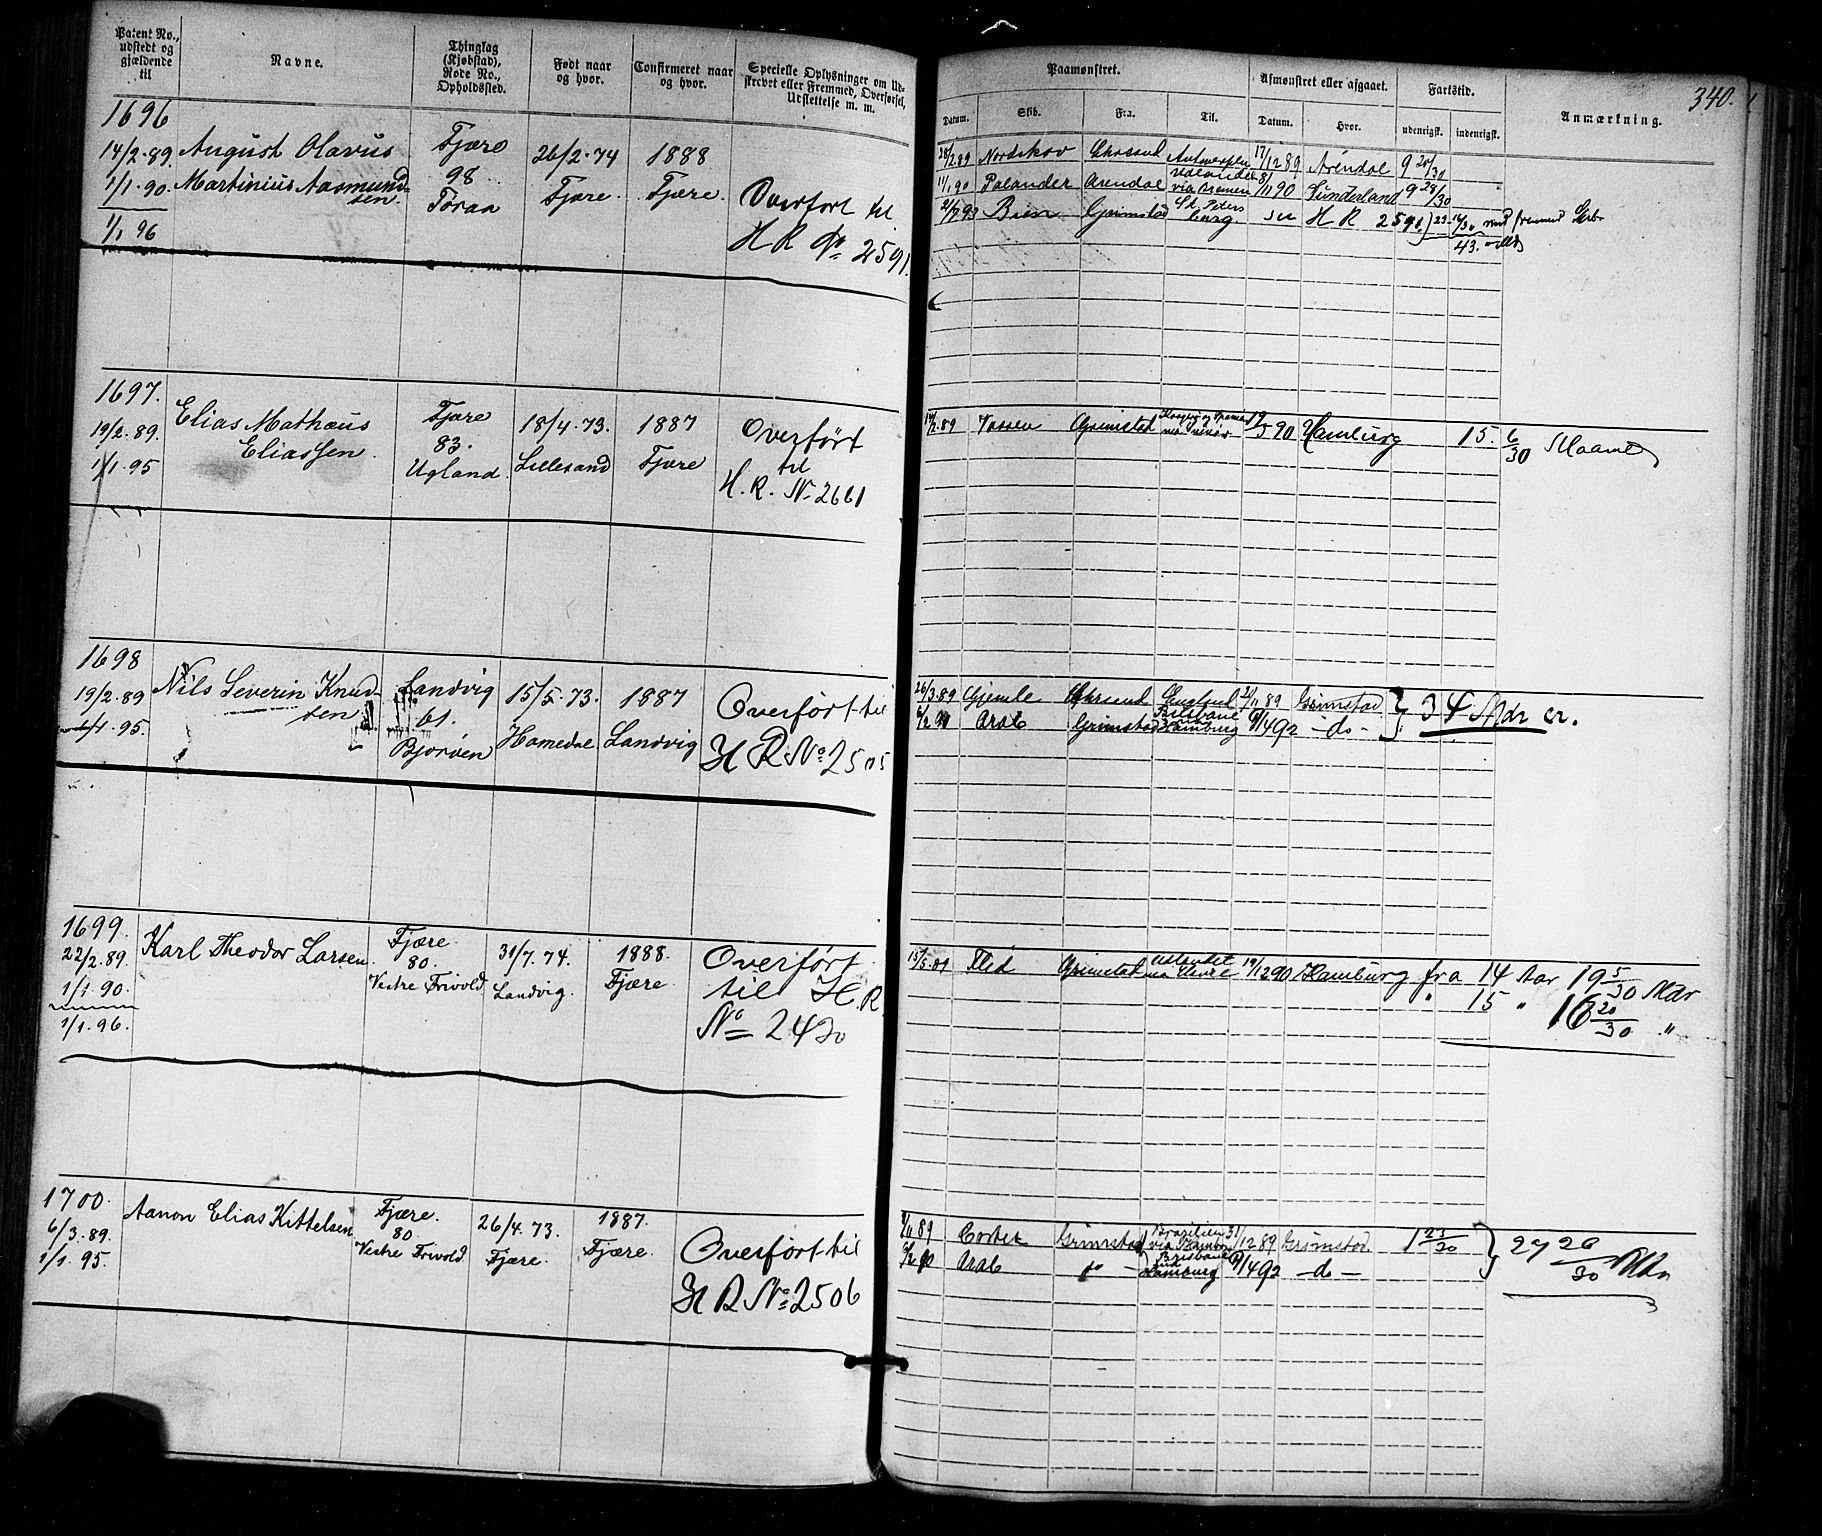 Patent No., udstedt og gjældende til
Navne.
Thinglag (Kjøbstad), Rode No., Opholdssted.
Født naar og hvor.
Confirmeret naar og hvor.
Specielle Oplysninger om Udskrevet eller Fremmed, Overførsel, Udslettelse m. m.
1696
14/2.89.
1/1.90.
1/1 96
August Olavus
Martinius Aasmund-
sen.
Fjære
98
Toraa
26/2.74
Fjære.
1888
Fjære.
Overført til
H R No 2591.
1697.
19/2.89.
1/1.95
Elias Mathæus
Eliassen.
Fjære
83.
Ugland.
18/4.73.
Lillesand
1887
Fjære
Overført
til
H. R. No 2661
1698
19/2.89
1/1.95.
Nils Severin Knud-
sen
Landvig
61.
Bjorven
15/5.73.
Homedal
1887
Landvig
Overført til
H R No 2505
1699.
22/2.89.
1/1.90.
1/1.96.
Karl Theodor Larsen
Fjære.
80.
Vestre Frivold.
31/7.74.
Landvig.
1888.
Fjære.
Overført
til H. R.
No 2430
1700.
6/3.89.
1/1.95.
Aanon Elias Kittelsen
Fjære.
80.
Vestre Frivold.
26/4.73.
Fjære.
1887.
Fjære.
Overført til
H R No 2506
340.
Paamønstret.
Afmønstret eller afgaaet.
Fartstid.
Anmærkning.
Datum.
Skib.
Fra.
Til.
Datum.
Hvor.
udenrigsk.
indenrigsk.
28/2.89 Nordskov Chrsand Antwerpen 17/12 89 Arendal 9 20/30
11/1 90 Palander Arendal Udlandet via Bremen 8/11 90 Sunderland 9 28/30
Grimstad St. Petersburg H R 2591
43.
2.89 Vossen Grimstad 90 Hamburg 15. 6/30 Maaned
26/3.89 Gjemle Chrsand England 21/11 89 Grimstad
Arab Grimstad Brisbane Hamburg 492 -do- } 34 Mdr cr.
15/5.89 Grimstad Udlandet 19/12 90 Hamburg fra 14 Aar 19 5/30 Mdr
" 15 " 16 20/30 "
89 Cortes Grimstad Brasilien via Hambr 31/12 89 Grimstad 1 27/30
Arab do - Brisbane Hamburg 492 -do- } 27 26/30 Mdr